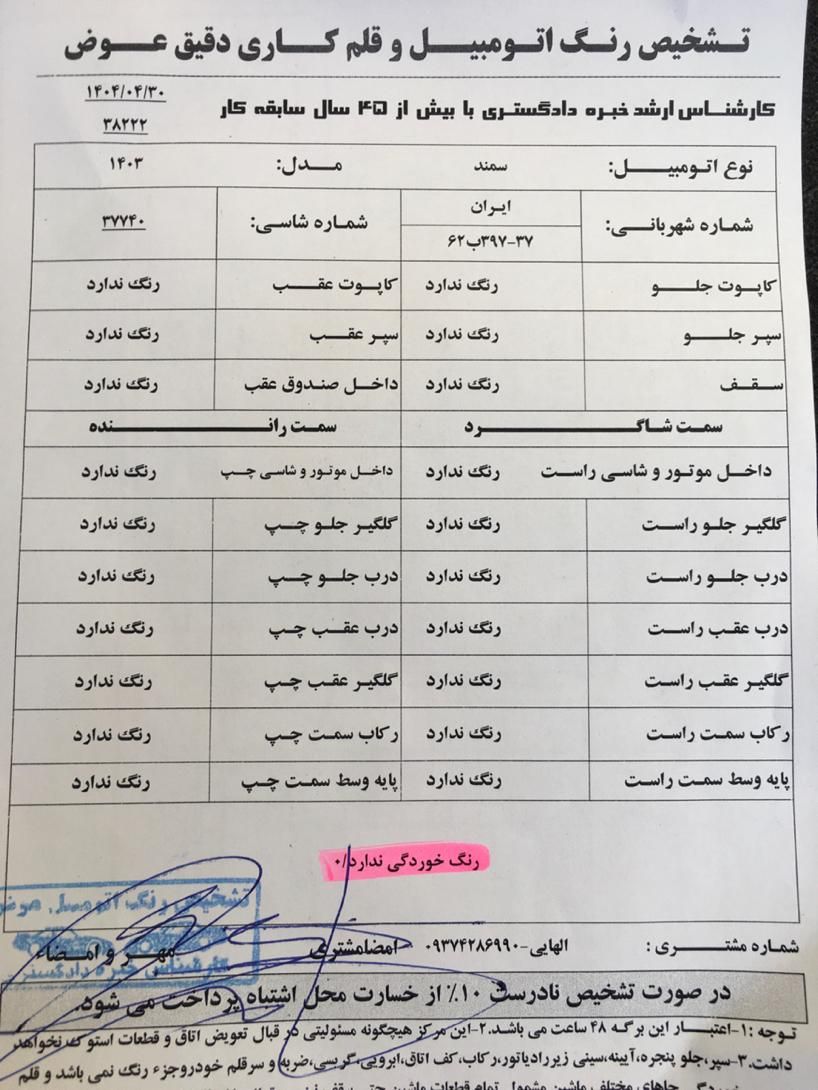 تشخیص رنگ اتومبیل و قلم کاری دقیق عوض
۱۴۰۴/۰۴/۳۰
کارشناس ارشد خبره دادگستری با بیش از ۴۵ سال سابقه کار
۳۸۲۲۲
نوع اتومبیل: سمند مدل: ۱۴۰۳
شماره شهربانی: ایران شماره شاسی: ۳۷۷۴۰
۶۲ب۳۹۷-۳۷
کاپوت جلو رنگ ندارد کاپوت عقب رنگ ندارد
سپر جلو رنگ ندارد سپر عقب رنگ ندارد
سقف رنگ ندارد داخل صندوق عقب رنگ ندارد
سمت شاگرد سمت راننده
داخل موتور و شاسی راست رنگ ندارد داخل موتور و شاسی چپ رنگ ندارد
گلگیر جلو راست رنگ ندارد گلگیر جلو چپ رنگ ندارد
درب جلو راست رنگ ندارد درب جلو چپ رنگ ندارد
درب عقب راست رنگ ندارد درب عقب چپ رنگ ندارد
گلگیر عقب راست رنگ ندارد گلگیر عقب چپ رنگ ندارد
رکاب سمت راست رنگ ندارد رکاب سمت چپ رنگ ندارد
پایه وسط سمت راست رنگ ندارد پایه وسط سمت چپ رنگ ندارد
رنگ خوردگی ندارد/۰
تشخیص رنگ اتومبیل
شماره مشتری : الهایی-۰۹۳۷۴۲۸۶۹۹۰ امضامشتری مهر و امضاء
کارشناس خبره دادگستر
در صورت تشخیص نادرست ۱۰٪ از خسارت محل اشتباه پرداخت می شود.
توجه :۱-اعتبار این برگه ۴۸ ساعت می باشد.۲-این مرکز هیچگونه مسئولیتی در قبال تعویض اتاق و قطعات استوک نخواهد
داشت.۳-سپر،جلو پنجره،آیینه،سینی زیررادیاتور،رکاب،کف اتاق،ابرویی،گریسی،ضربه و سرقلم خودروجزء رنگ نمی باشد و قلم